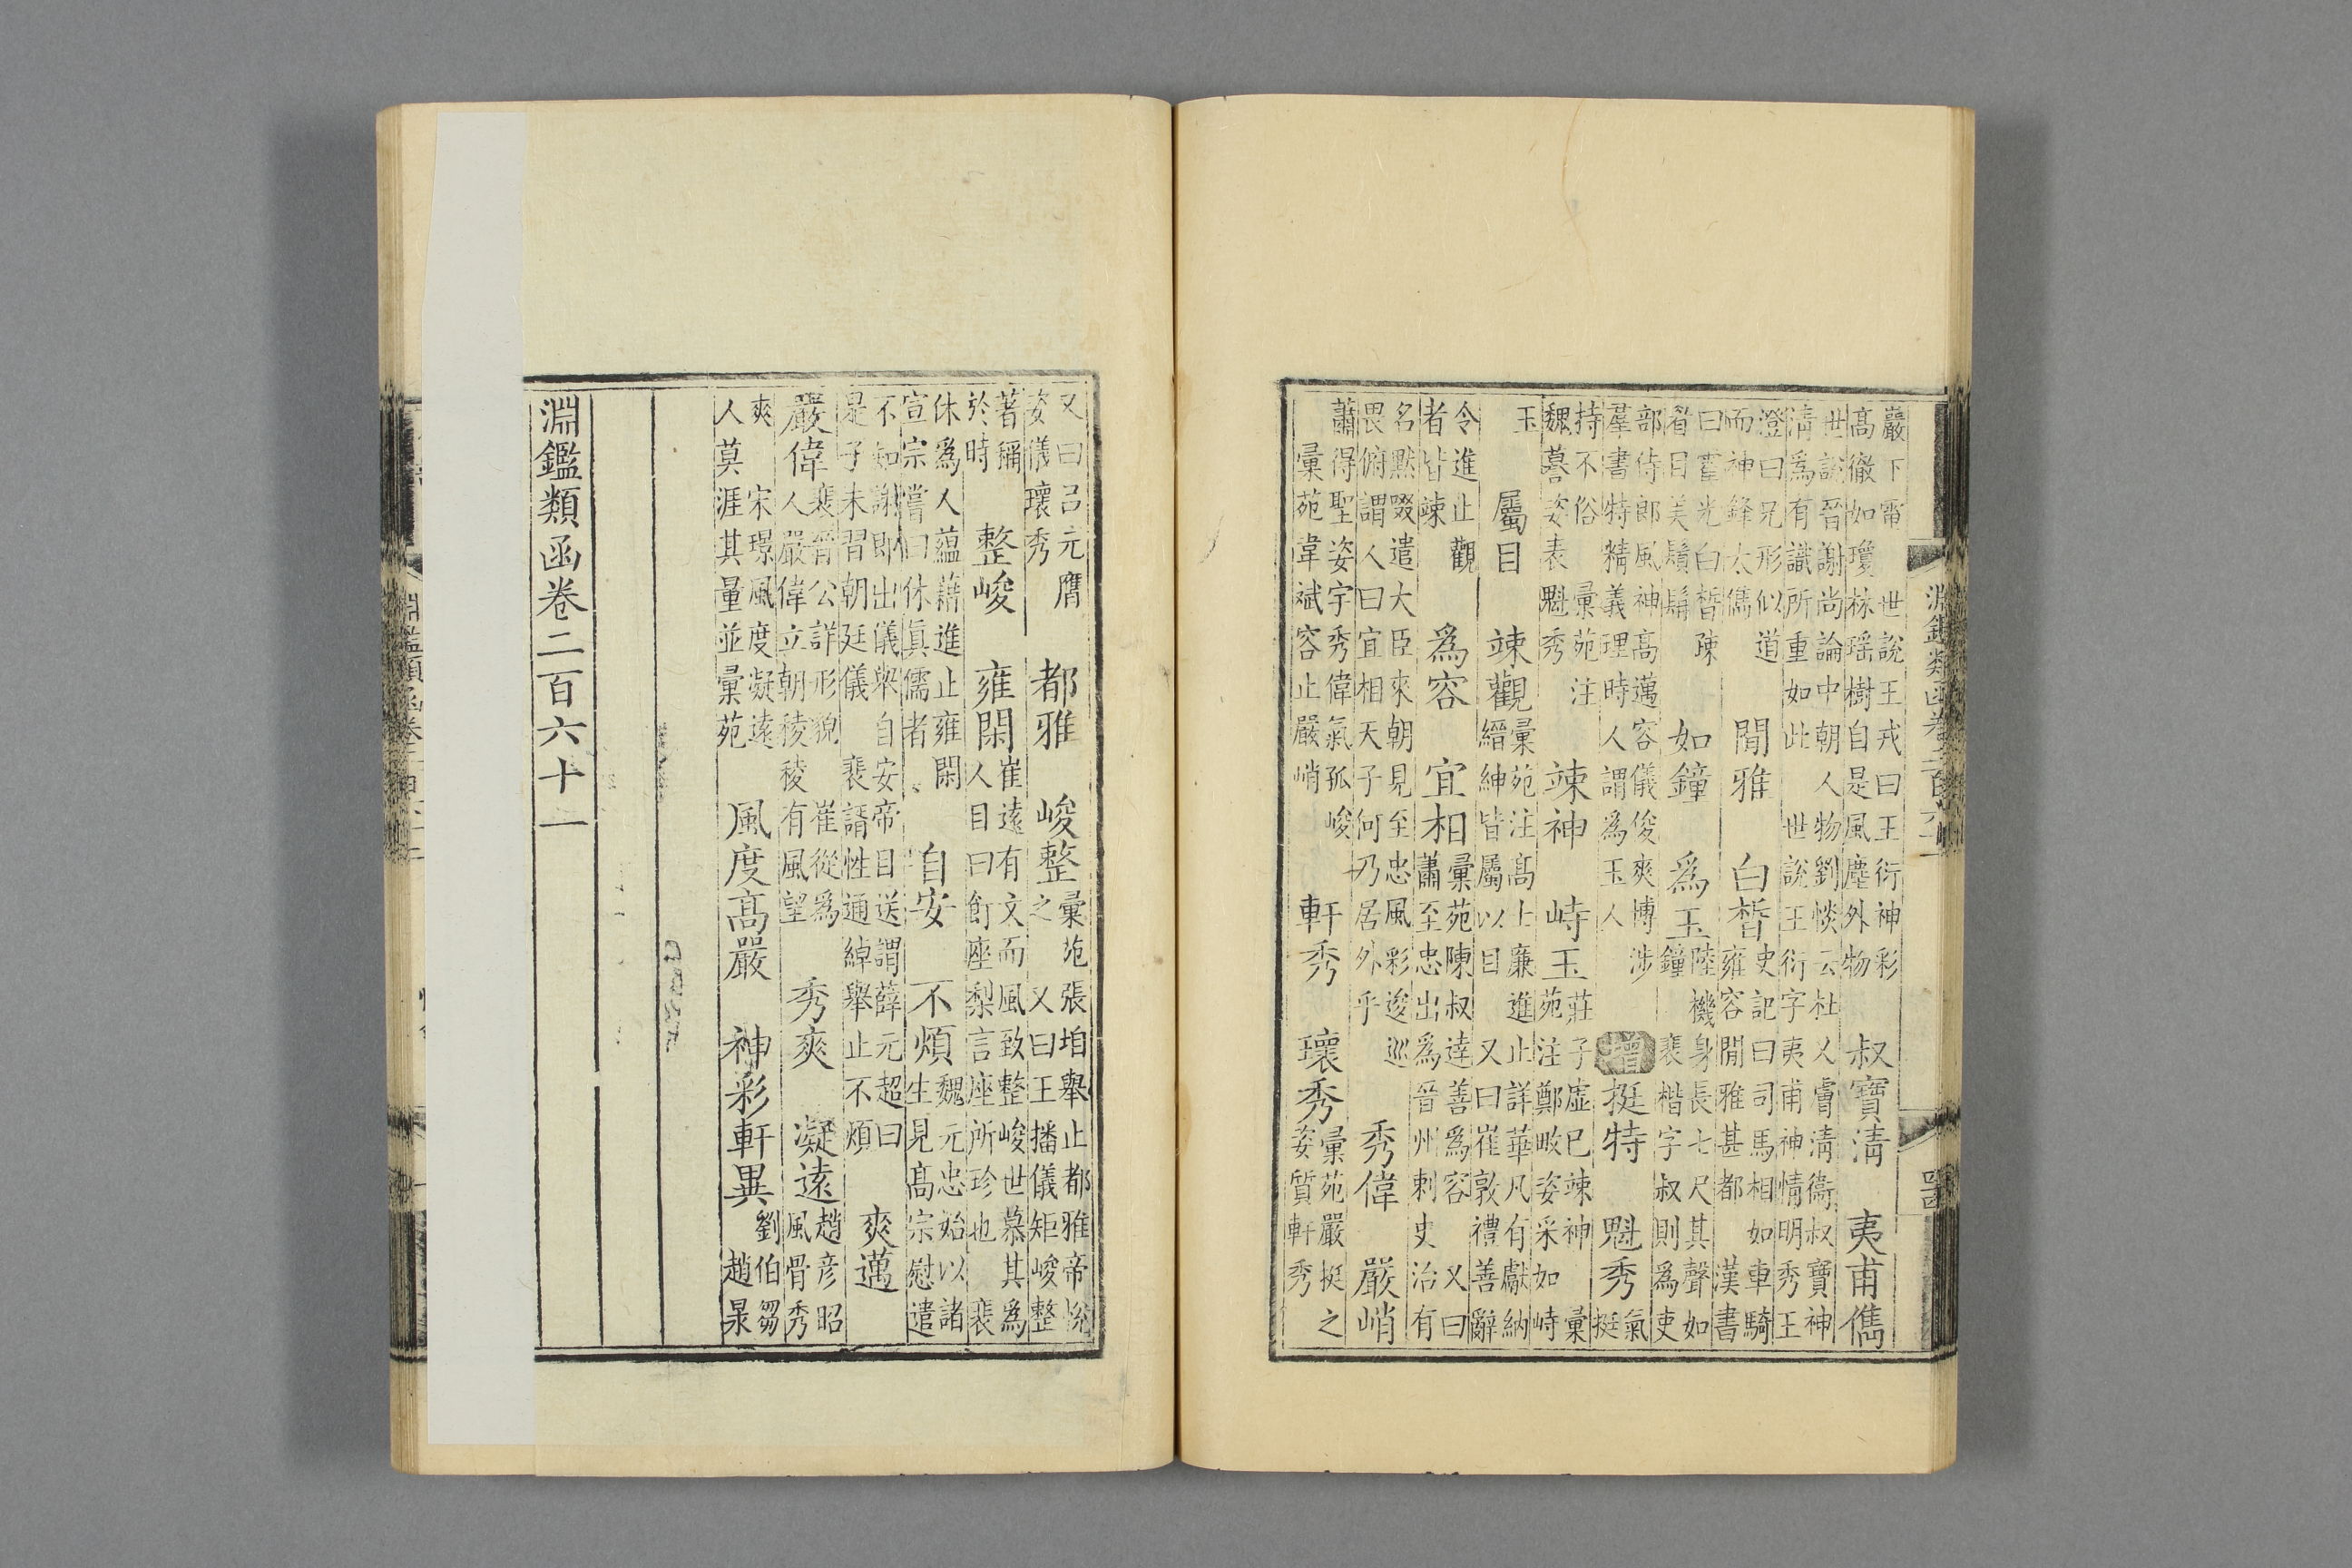 巖下電 世說王戎曰王衍神彩
高徹如瓊林瑤樹自是風塵外物
叔寶清 夷甫儁
世說晉謝尚論中朝人物劉惔云杜乂膚清衞叔寶神
清為有識所重如此 世說王衍字夷甫神情明秀王
澄曰兄形似道
而神鋒太儁
閒雅 白晳
史記曰司馬相如車騎
雍容閒雅甚都 漢書
曰霍光白晳疎
眉目美鬚髯
如鐘 為玉
陸機身長七尺其聲如
鐘 裴楷字叔則為吏
部侍郎風神高邁容儀俊爽博涉
羣書特精義理時人謂為玉人
增 挺特 魁秀
氣
挺
持不俗 彙苑注
魏謩姿表魁秀
竦神 峙玉
莊子虛已竦神 彙
苑注鄭畋姿采如峙
玉
屬目 竦觀
彙苑注高上廉進止詳華凡有獻納
縉紳皆屬以目 又曰崔敦禮善辭
令進止觀
者皆竦
為容 宜相
彙苑陳叔達善為容 又曰
蕭至忠出為晉州刺史治有
名默啜遣大臣來朝見至忠風彩逡巡
畏俯謂人曰宜相天子何乃居外乎
秀偉 嚴峭
蕭得聖姿宇秀偉氣孤峻
彙苑韋斌容止嚴峭
軒秀 瓌秀
彙苑嚴挺之
姿質軒秀
又曰呂元膺
姿儀瓌秀
都雅 峻整
彙苑張垍舉止都雅帝悅
之 又曰王播儀矩峻整
著稱
於時
整峻 雍閑
崔遠有文而風致整峻世慕其為
人目曰飣座梨言座所珍也 裴
休為人蘊藉進止雍閑
宣宗嘗曰休真儒者
自安 不煩
魏元忠始以諸
生見高宗慰遣
不知謝即出儀舉自安帝目送謂薛元超曰
是子未習朝廷儀 裴諝性通綽舉止不煩
爽邁
嚴偉
裴晉公詳形貌 崔從為
人嚴偉立朝稜稜有風望
秀爽 凝遠
趙彥昭
風骨秀
爽 宋璟風度凝遠
人莫涯其量並彙苑
風度高嚴 神彩軒異
劉伯芻
趙
淵鑑類函卷二百六十一